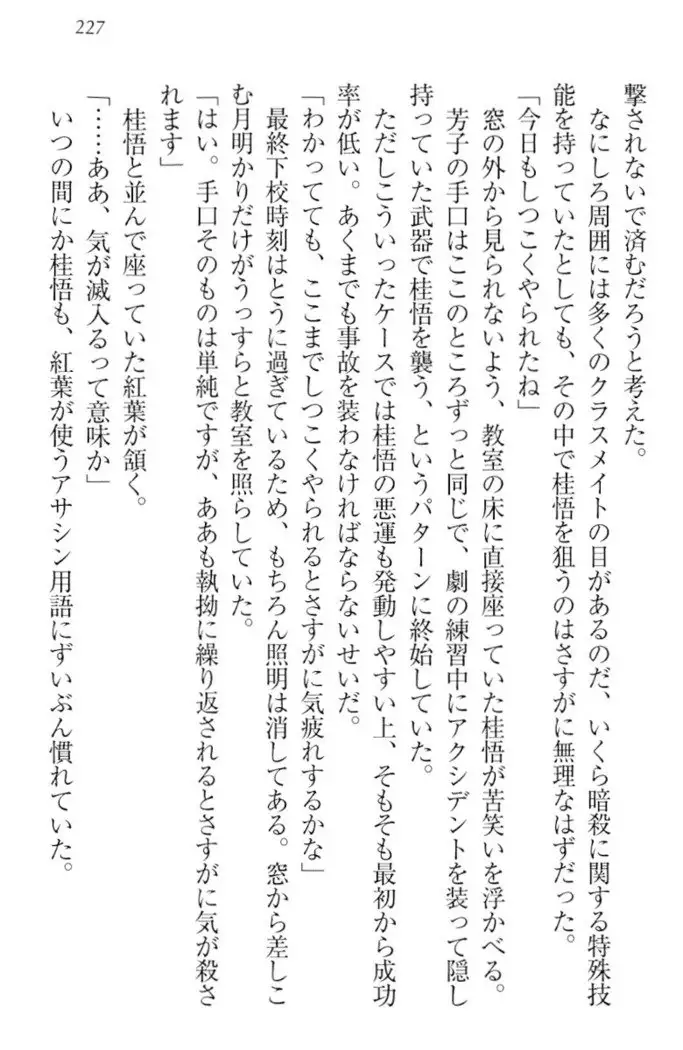 227
撃されないで済むだろうと考えた。
なにしろ周囲には多くのクラスメイトの目があるのだ、いくら暗殺に関する特殊技
能を持っていたとしても、その中で桂悟を狙うのはさすがに無理なはずだった。
「今日もしつこくやられたね」
窓の外から見られないよう、教室の床に直接座っていた桂悟が苦笑いを浮かべる。
芳子の手口はここのところずっと同じで、劇の練習中にアクシデントを装って隠し
持っていた武器で桂悟を襲う、というパターンに終始していた。
ただしこういったケースでは桂悟の悪運も発動しやすい上、そもそも最初から成功
率が低い。あくまでも事故を装わなければならないせいだ。
「わかってても、ここまでしつこくやられるとさすがに気疲れするかな」
最終下校時刻はとうに過ぎているため、もちろん照明は消してある。窓から差しこ
む月明かりだけがうっすらと教室を照らしていた。
「はい。手口そのものは単純ですが、ああも執拗に繰り返されるとさすがに気が殺さ
れます」
桂悟と並んで座っていた紅葉が頷く。
「……ああ、気が滅入るって意味か」
いつの間にか桂悟も、紅葉が使うアサシン用語にずいぶん慣れていた。